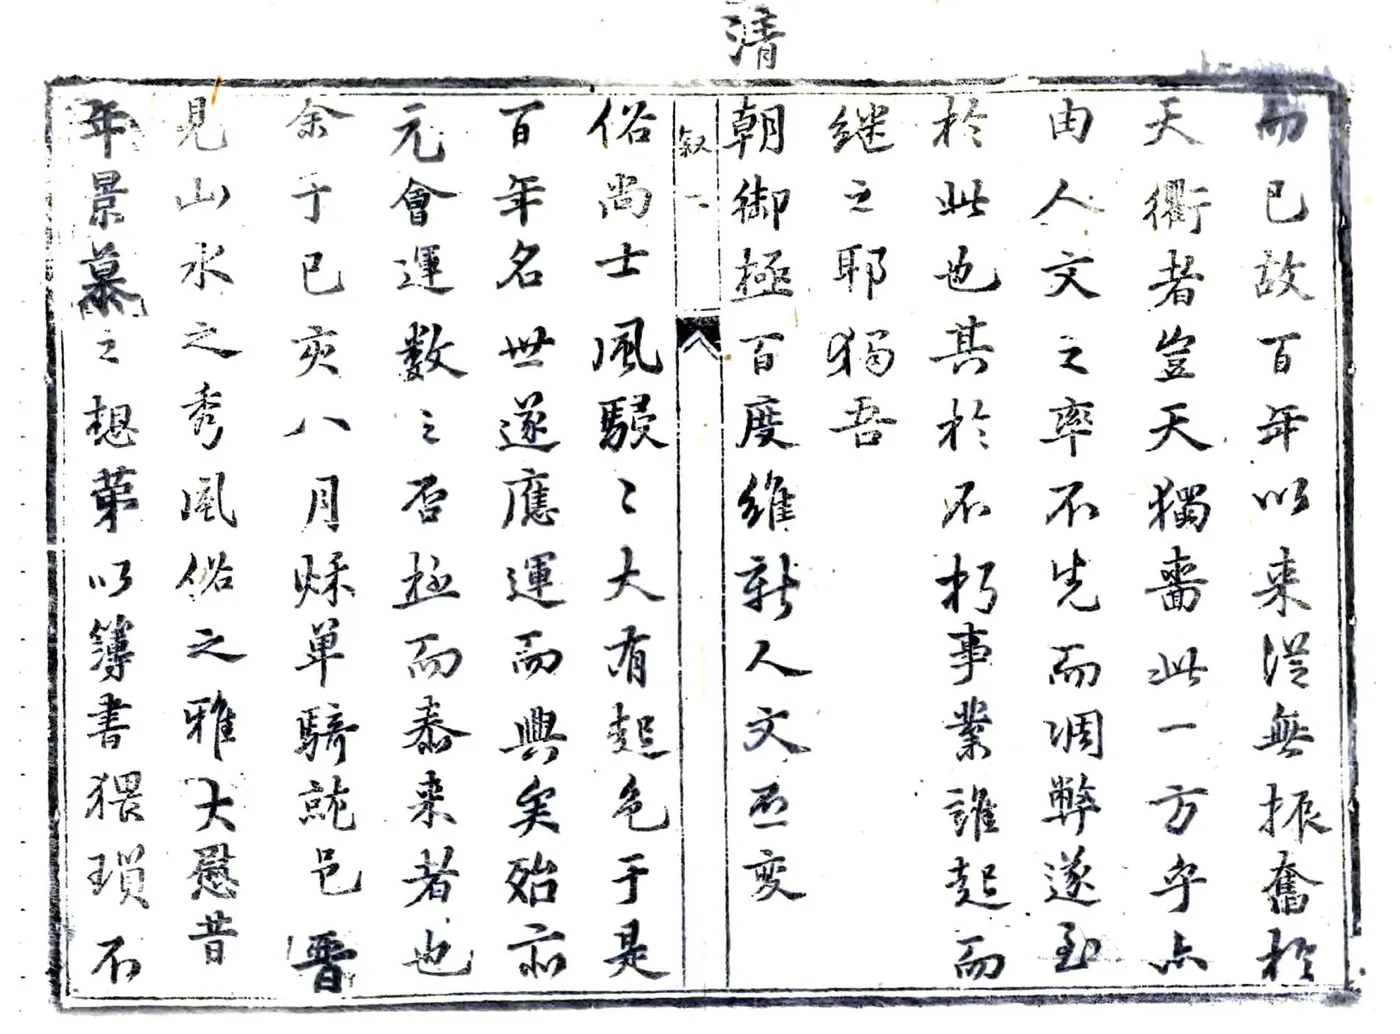 而已故百年以来從無振奮於
天衢者豈天獨嗇此一方乎亦
由人文之率不先而凋弊遂至
於此也其於不朽事業誰起而
継之耶獨吾
清
朝御極百度維新人文丕変
叙 二
俗尚士風駸〻大有起色于是
百年名世遂應運而興矣殆亦
元會運数之否極而泰来者也
余于已亥八月秌单騎蒞邑晋
見山水之秀風俗之雅大慰昔
年景慕之想第以簿書猥瑣不